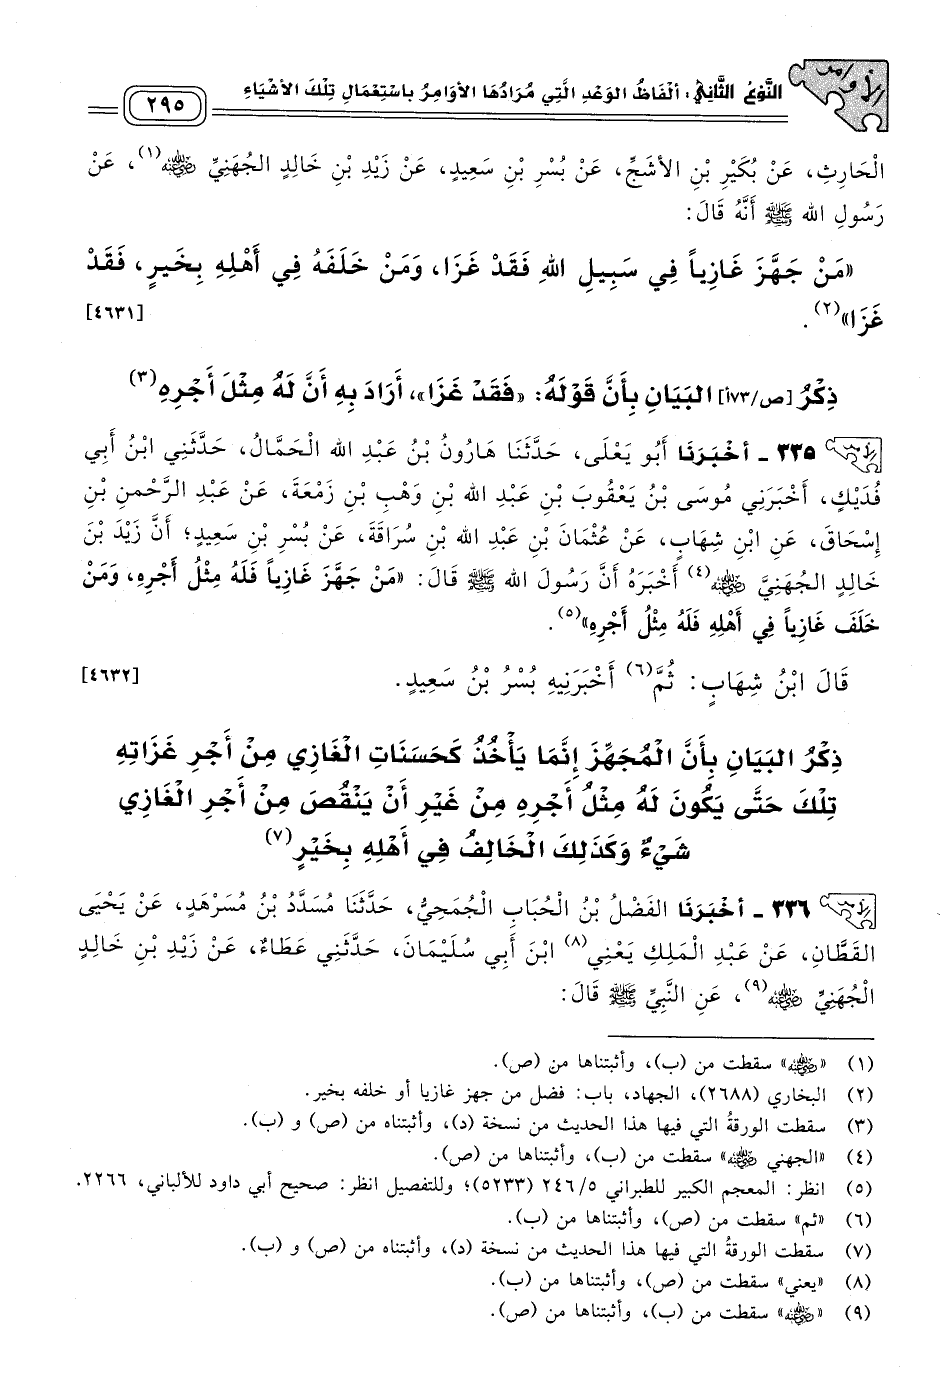 الأوامر
النَّوْعُ الثَّانِي: أَلْفَاظُ الوَعْدِ الَّتِي مُرَادُهَا الأَوَامِرُ بِاسْتِعْمَالِ تِلْكَ الأَشْيَاءِ
٢٩٥
الْحَارِثِ، عَنْ بُكَيْرِ بْنِ الأَشَجِّ، عَنْ بُسْرِ بْنِ سَعِيدٍ، عَنْ زَيْدِ بْنِ خَالِدٍ الجُهَنِيِّ ﵁(١)، عَنْ
رَسُولِ الله ﷺ أَنَّهُ قَالَ:
«مَنْ جَهَّزَ غَازِياً فِي سَبِيلِ اللهِ فَقَدْ غَزَا، وَمَنْ خَلَفَهُ فِي أَهْلِهِ بِخَيرٍ، فَقَدْ
غَزَا»(٢). [٤٦٣١]
ذِكْرُ [ص/٧٣أ] البَيَانِ بِأَنَّ قَوْلَهُ: «فَقَدْ غَزَا»، أَرَادَ بِهِ أَنَّ لَهُ مِثْلَ أَجْرِهِ(٣)
٣٣٥ - أَخْبَرَنَا أَبُو يَعْلَى، حَدَّثَنَا هَارُونُ بْنُ عَبْدِ الله الحَمَّالُ، حَدَّثَنِي ابْنُ أَبِي
فُدَيْكٍ، أَخْبَرَنِي مُوسَى بْنُ يَعْقُوبَ بْنِ عَبْدِ الله بْنِ وَهْبِ بْنِ زَمْعَةَ، عَنْ عَبْدِ الرَّحْمنِ بْنِ
إِسْحَاقَ، عَنِ ابْنِ شِهَابٍ، عَنْ عُثْمَانَ بْنِ عَبْدِ الله بْنِ سُرَاقَةَ، عَنْ بُسْرِ بْنِ سَعِيدٍ؛ أَنَّ زَيْدَ بْنَ
خَالِدٍ الجُهَنِيَّ ﵁(٤) أَخْبَرَهُ أَنَّ رَسُولَ الله ﷺ قَالَ: «مَنْ جَهَّزَ غَازِياً فَلَهُ مِثْلُ أَجْرِهِ، وَمَنْ
خَلَفَ غَازِياً فِي أَهْلِهِ فَلَهُ مِثْلُ أَجْرِهِ»(٥).
قَالَ ابْنُ شِهَابٍ: ثُمَّ(٦) أَخْبَرَنِيهِ بُسْرُ بْنُ سَعِيدٍ. [٤٦٣٢]
ذِكْرُ البَيَانِ بِأَنَّ الْمُجَهِّزَ إِنَّمَا يَأْخُذُ كَحَسَنَاتِ الْغَازِي مِنْ أَجْرِ غَزَاتِهِ
تِلْكَ حَتَّى يَكُونَ لَهُ مِثْلُ أَجْرِهِ مِنْ غَيْرِ أَنْ يَنْقُصَ مِنْ أَجْرِ الْغَازِي
شَيْءٌ وَكَذلِكَ الْخَالِفُ فِي أَهْلِهِ بِخَيْرٍ(٧)
٣٣٦ - أَخْبَرَنَا الفَضْلُ بْنُ الْحُبَابِ الْجُمَحِيُّ، حَدَّثَنَا مُسَدَّدُ بْنُ مُسَرْهَدٍ، عَنْ يَحْيَى
القَطَّانِ، عَنْ عَبْدِ الْمَلِكِ يَعْنِي(٨) ابْنَ أَبِي سُلَيْمَانَ، حَدَّثَنِي عَطَاءٌ، عَنْ زَيْدِ بْنِ خَالِدٍ
الْجُهَنِيِّ ﵁(٩)، عَنِ النَّبِيِّ ﷺ قَالَ:
(١) «﵁» سقطت من (ب)، وأثبتناها من (ص).
(٢) البخاري (٢٦٨٨)، الجهاد، باب: فضل من جهز غازيا أو خلفه بخير.
(٣) سقطت الورقةُ التي فيها هذا الحديث من نسخة (د)، وأثبتناه من (ص) و (ب).
(٤) «الجهني ﵁» سقطت من (ب)، وأثبتناها من (ص).
(٥) انظر: المعجم الكبير للطبراني ٥/٢٤٦ (٥٢٣٣)؛ وللتفصيل انظر: صحيح أبي داود للألباني، ٢٢٦٦.
(٦) «ثم» سقطت من (ص)، وأثبتناها من (ب).
(٧) سقطت الورقةُ التي فيها هذا الحديث من نسخة (د)، وأثبتناه من (ص) و (ب).
(٨) «يعني» سقطت من (ص)، وأثبتناها من (ب).
(٩) «﵁» سقطت من (ب)، وأثبتناها من (ص).